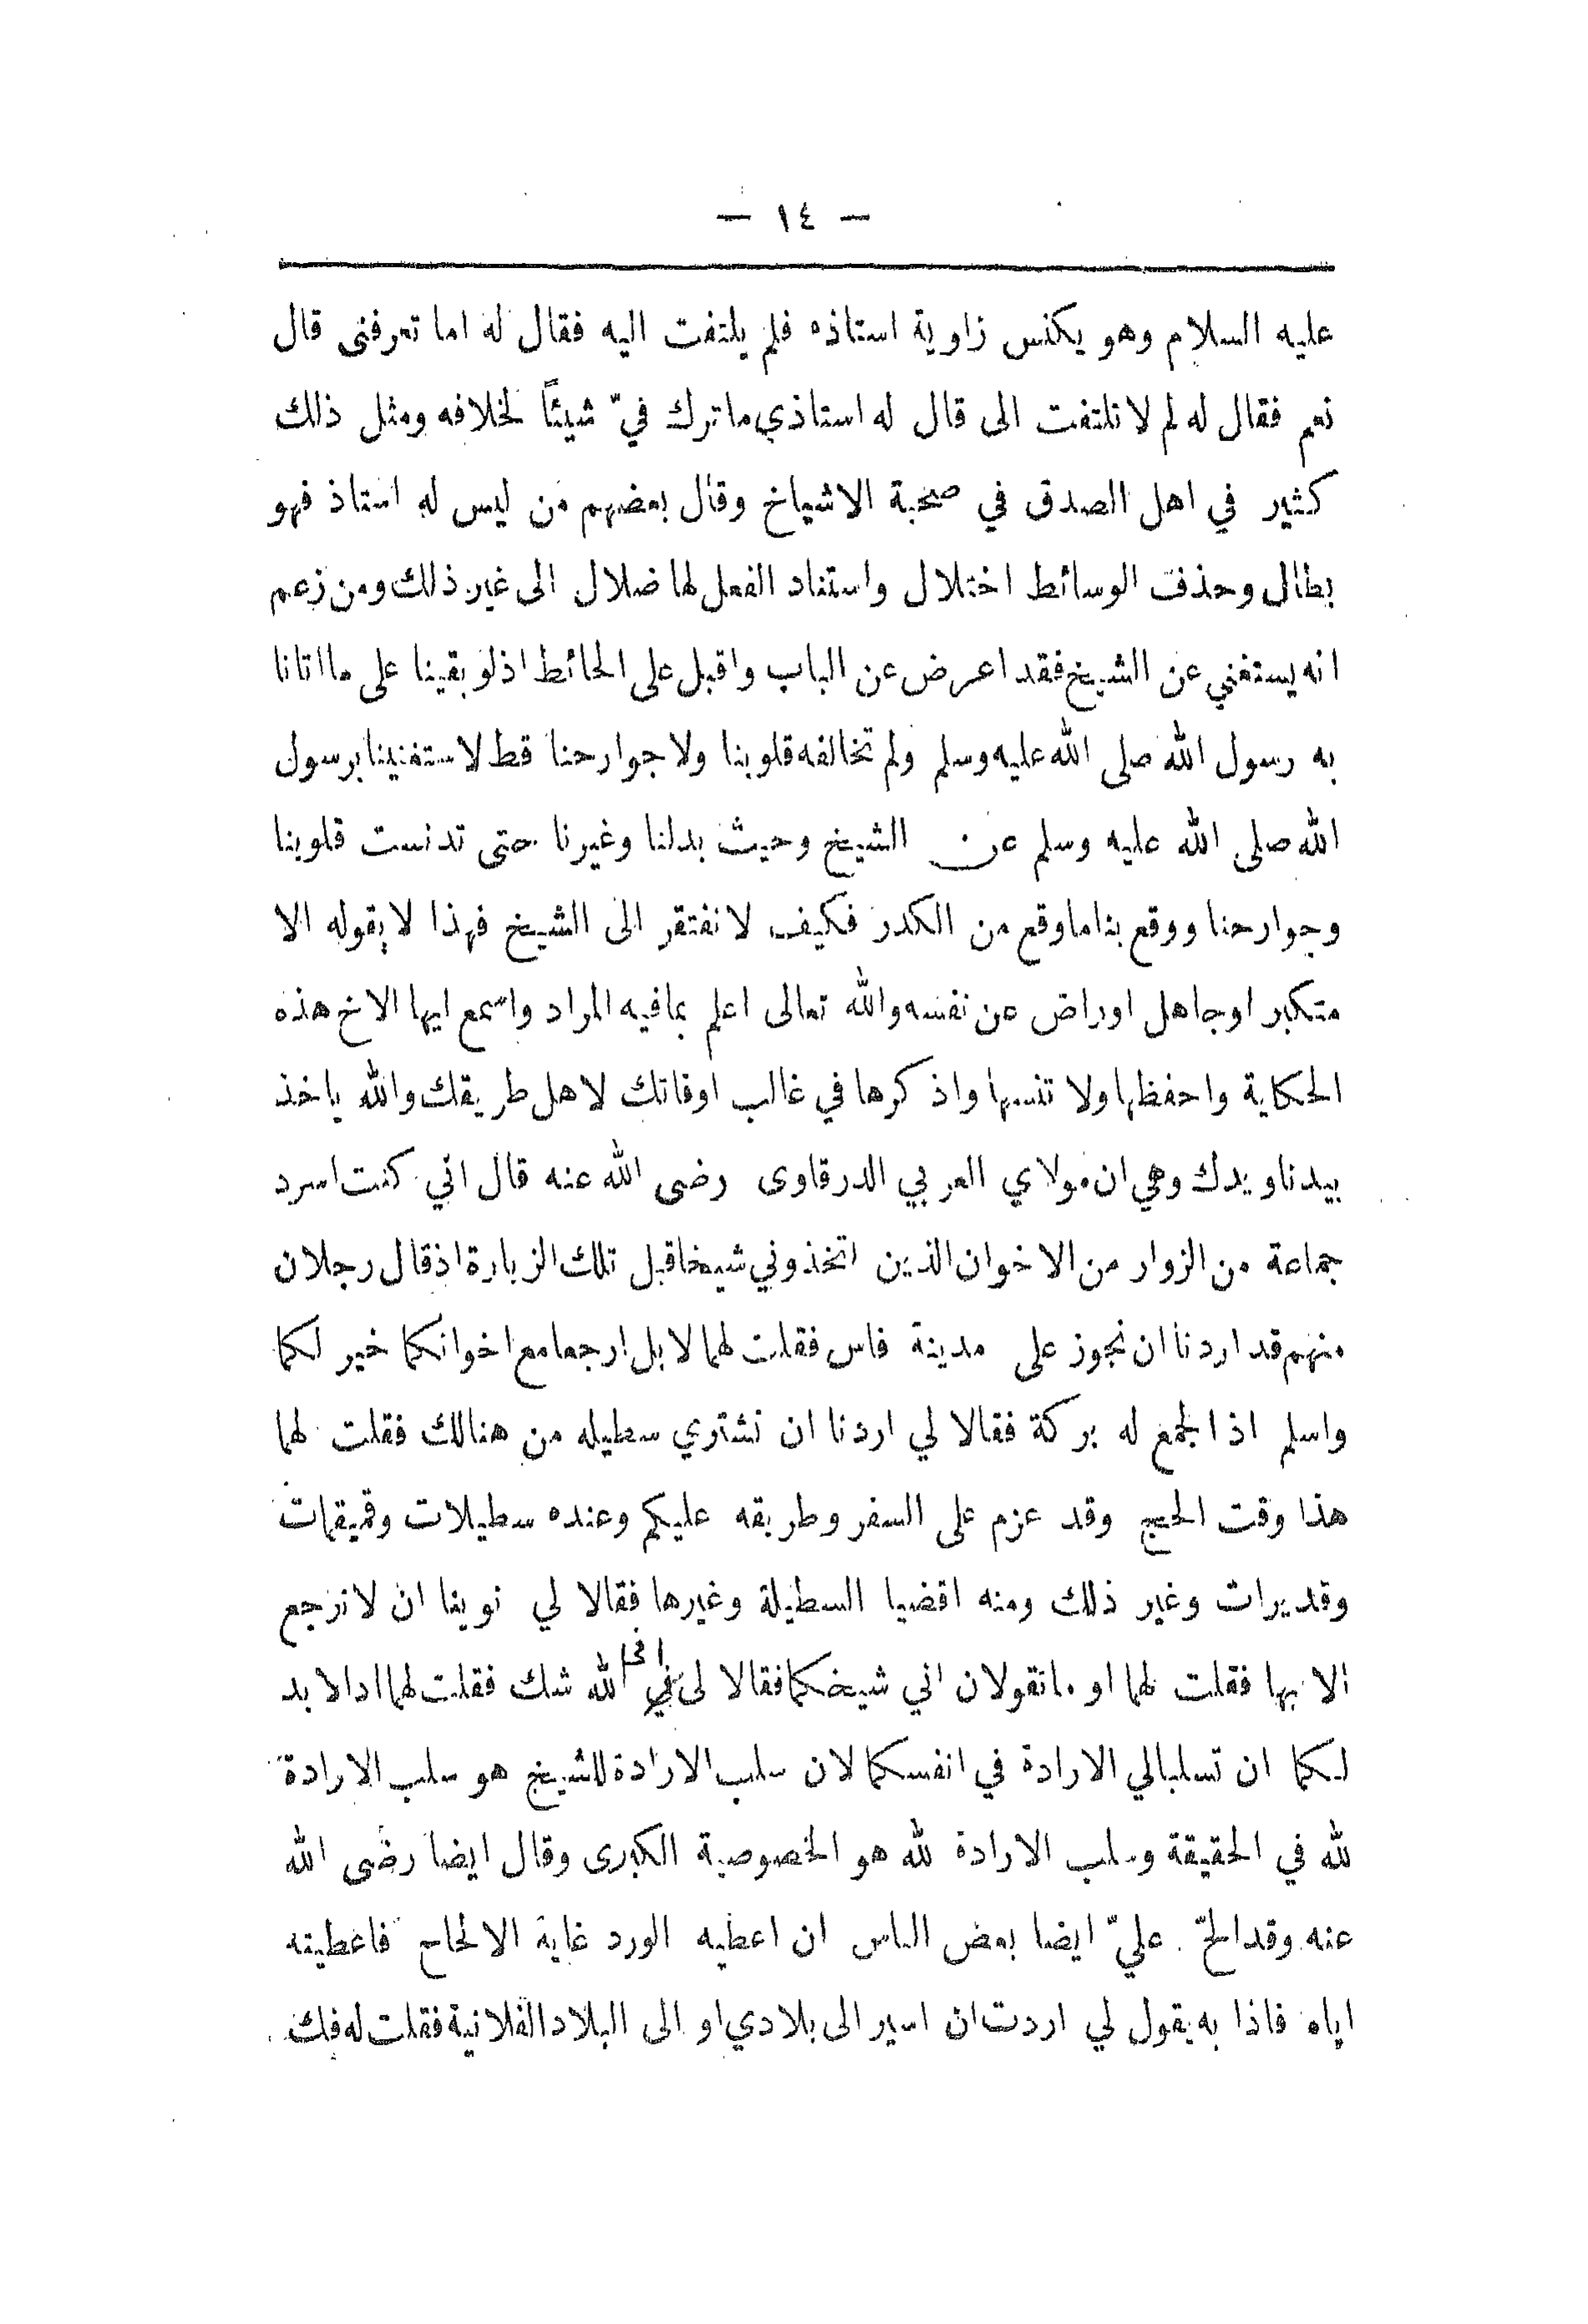 — ١٤ —
عليه السلام وهو يكنس زاوية استاذه فلم يلتفت اليه فقال له اما تعرفنى قال
نعم فقال له لم لا تلتفت الى قال له استاذي ما ترك فيّ شيئاً لخلافه ومثل ذلك
كثير في اهل الصدق في صحبة الاشياخ وقال بعضهم من ليس له استاذ فهو
بطال وحذف الوسائط اختلال واستناد الفعل لها ضلال الى غير ذلك ومن زعم
انه يستغني عن الشيخ فقد اعرض عن الباب واقبل على الحائط اذ لو بقينا على ما اتانا
به رسول الله صلى الله عليه وسلم ولم تخالفه قلوبنا ولا جوارحنا قط لاستغنينا برسول
الله صلى الله عليه وسلم عن الشيخ وحيث بدلنا وغيرنا حتى تدنست قلوبنا
وجوارحنا ووقع بنا ما وقع من الكدر فكيف لا نفتقر الى الشيخ فهذا لا يقوله الا
متكبر او جاهل او راض عن نفسه والله تعالى اعلم بما فيه المراد واسمع ايها الاخ هذه
الحكاية واحفظها ولا تنسها واذكرها في غالب اوقاتك لاهل طريقك والله ياخذ
بيدنا ويدك وهي ان مولاي العربي الدرقاوى رضى الله عنه قال اني كنت اسرد
جماعة من الزوار من الاخوان الذين اتخذوني شيخا قبل تلك الزيارة اذ قال رجلان
منهم قد اردنا ان نجوز على مدينة فاس فقلت لهما لا بل ارجعا مع اخوانكما خير لكما
واسلم اذ الجمع له بركة فقالا لي اردنا ان نشتري سطيله من هنالك فقلت لهما
هذا وقت الحج وقد عزم على السفر وطريقه عليكم وعنده سطيلات وقميقمات
وقديرات وغير ذلك ومنه اقضيا السطيلة وغيرها فقالا لي نوينا ان لا نرجع
الا بها فقلت لهما او ما تقولان اني شيخكما فقالا لى افى الله شك فقلت لهما اد لا بد
لكما ان تسلبا لي الارادة في انفسكما لان سلب الارادة للشيخ هو سلب الارادة
لله في الحقيقة وسلب الارادة لله هو الخصوصية الكبرى وقال ايضا رضى الله
عنه وقد الحّ عليّ ايضا بعض الناس ان اعطيه الورد غاية الالحاح فاعطيته
اياه فاذا به يقول لي اردت ان اسير الى بلادي او الى البلاد الفلانية فقلت له فك